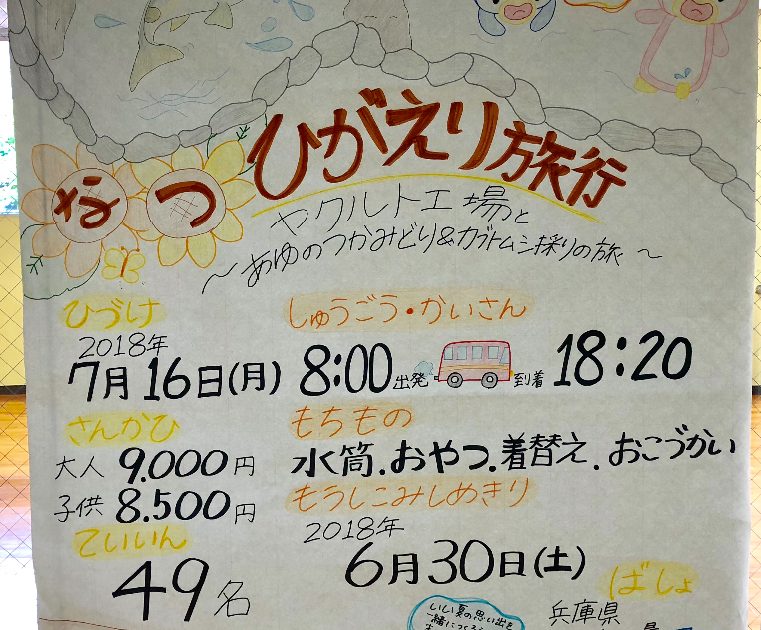 なつ ひがえり旅行
ヤクルト工場と
～あゆのつかみどり&カブトムシ採りの旅～
ひづけ
2018年
7月16日(月)
しゅうごう・かいさん
8:00出発 到着18:20
さんかひ
大人 9.000円
子供 8.500円
もちもの
水筒.おやつ.着替え.おこづかい
もうしこみしめきり
2018年
6月30日(土)
ていいん
49名
ばしょ
兵庫県
いい夏の思い出を